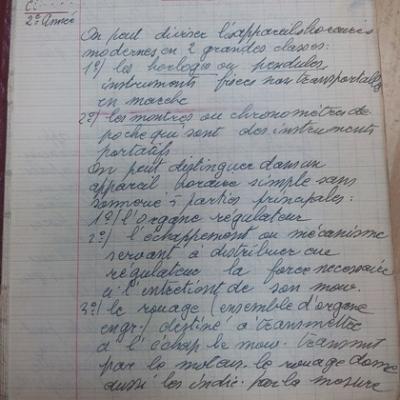 2e Année
On peut diviser les appareils horaires
modernes en 2 grandes classes:
1º) les horloges ou pendules,
instruments fixes non transportables
en marche
2º) les montres ou chronomètres de
poche qui sont des instruments
portatifs
On peut distinguer dans un
appareil horaire simple sans
sonnerie 5 parties principales:
1º) l'organe régulateur
2º) l'échappement ou mécanisme
servant à distribuer au
régulateur la force nécessaire
à l'entretient de son mouv.
3º) le rouage (ensemble d'organe
engr.) destiné a transmettre
a l'échap le mouv. transmit
par le moteur. le rouage donne
aussi les indic. par la mesure